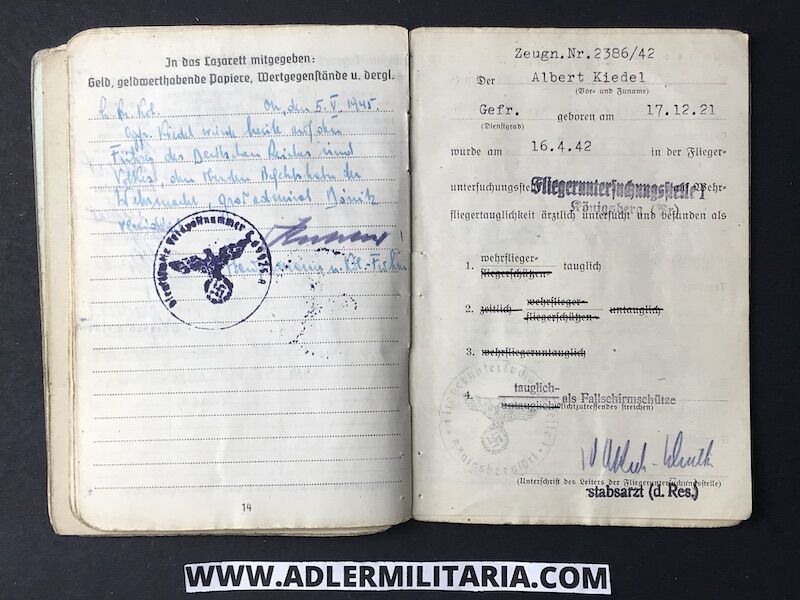 In das Lazarett mitgegeben:
Geld, geldwerthabende Papiere, Wertgegenstände u. dergl.
O.U., den 5. V. 1945.
Kiedel wurde heute auf den
Führer des Deutschen Reiches und
Volkes, den Obersten Befehlshaber der
Wehrmacht, Großadmiral Dönitz
Dienststelle Feldpostnummer
14
Zeugn.Nr.2386/42
Der Albert Kiedel
(Vor- und Zuname)
Gefr. geboren am 17.12.21
(Dienstgrad)
wurde am 16.4.42 in der Flieger-
untersuchungsste Fliegeruntersuchungsstelle 1 auf Wehr-
Königsberg (Pr)
fliegertauglichkeit ärztlich untersucht und befunden als
1. wehrflieger-
fliegerschützen- tauglich
2. zeitlich wehrflieger-
fliegerschützen- untauglich
3. wehrfliegeruntauglich
4. tauglich-
untauglich- als Fallschirmschütze
(Nichtzutreffendes streichen)
(Unterschrift des Leiters der Fliegeruntersuchungsstelle)
stabsarzt (d. Res.)
WWW.ADLERMILITARIA.COM